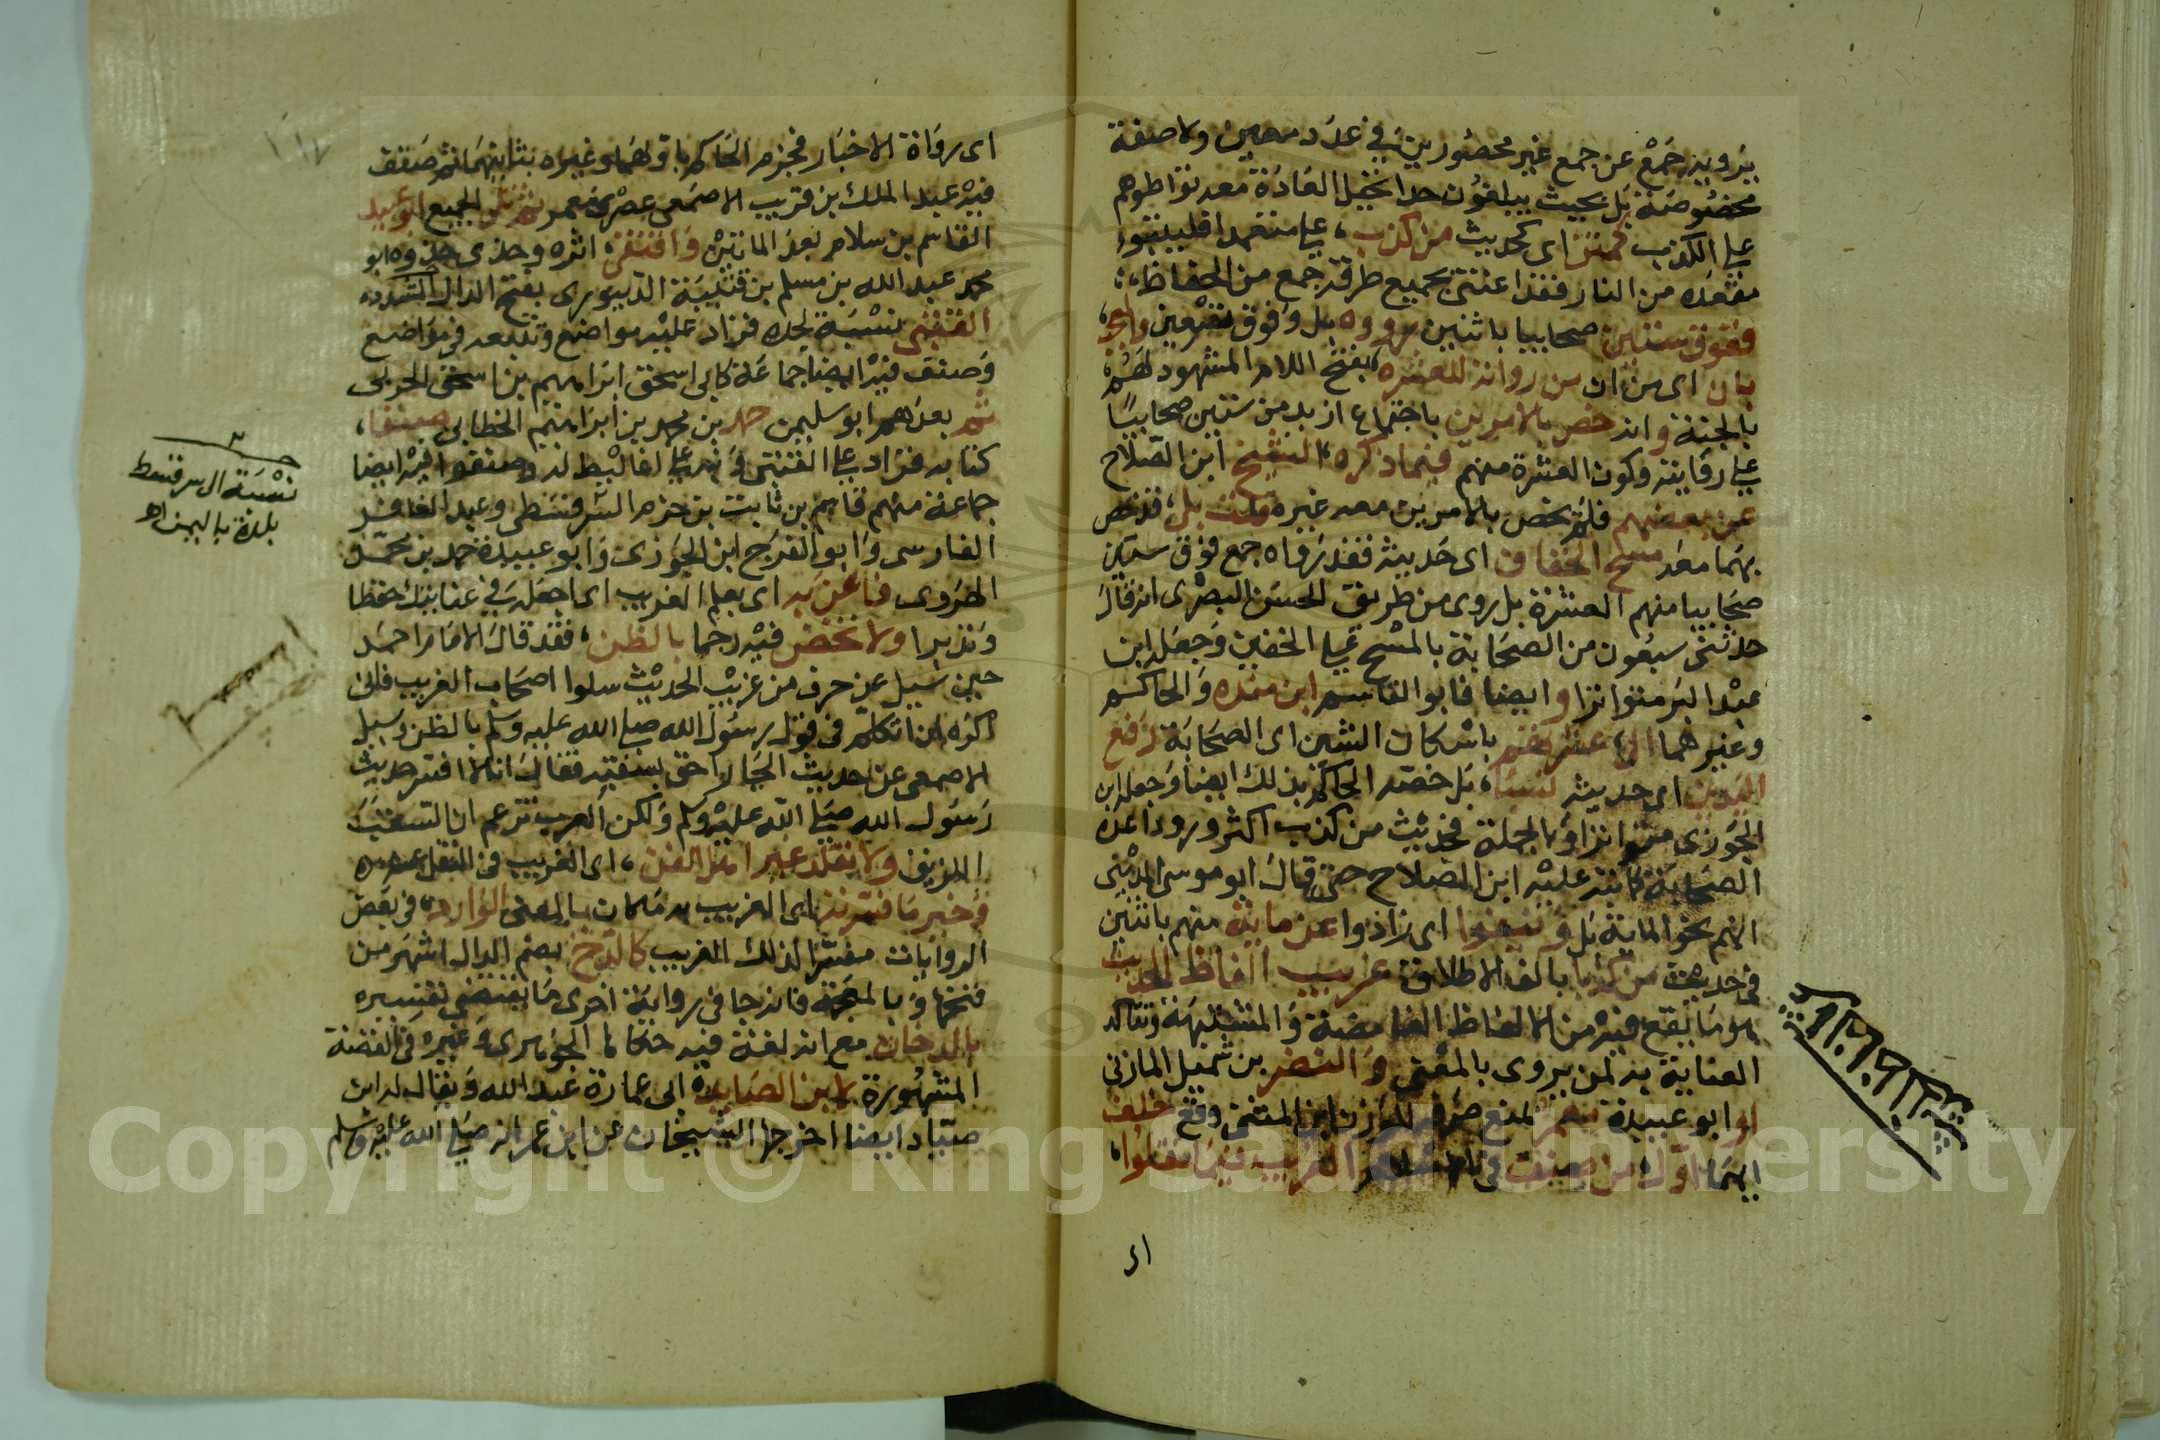 يرويه جمع عن جمع غير محصورين في عدد معين ولا صفة
مخصوصة بل بحيث يبلغون حدا تحيل العادة معه تواطوهم
على الكذب كمتن اى كحديث من كذب على متعمدا فليتبوء
مقعده من النار فقد اعتنى بجميع طرقه جمع من الحفاظ
ففوق ستين صحابيا باثنين رووه بل وفوق تسعين واعجب
بان اى من ان من رواته للعشرة بفتح اللام المشهود لهم
بالجنة وانه خص بالامرين باجتماع ازيد من ستين صحابيا
على روايته وكون العشرة منهم فيما ذكره الشيخ ابن الصلاح
عن بعضهم فلم يخص بالامرين معه غيره قلت بل قد خص
بهما معه مسح الخفاف اى حديثه فقد رواه جمع فوق ستين
صحابيا منهم العشرة بل روى من طريق الحسن البصرى انه قال
حدثنى سبعون من الصحابة بالمسح على الخفين وجعله ابن
عبد البر متواترا وايضا فابو القاسم ابن منده والحاكم
وغيرهما الى عشرتهم باسكان الشين اى الصحابة رفع
اليدين اى حديثه نسبا بل خصه الحاكم بذلك ايضا وجعله ابن
الجوزى متواترا وبالجملة فحديث من كذب اكثر ورودا عده
الصحابة كابنه عليه ابن الصلاح حتى قال ابو موسى المدينى
انهم نحو الماية بل و اى زادوا عن ماية منهم باثنين
فى حديث من كذبا بالف الاطلاق غريب الفاظ الحديث
هو ما يقع فيه من الالفاظ الغامضة والمشتبهة وتتاكد
العناية به لمن يروى بالمعنى والنضر بن شميل المازنى
او ابو عبيدة معمر لمنع صرفه للوزن ابن المثنى وقع خلف
ايهما اول من صنف فى الغريب فيما نقلوا
اى
اى رواة الاخبار فجزم الحاكم باولهما وغيره بثانيهما ثم صنف
فيه عبد الملك بن قريب الاصمعى عصرى معمر ثم تلى الجميع ابو عبيد
القاسم بن سلام بعد المائتين واقتفى اثره وحذى حذوه ابو
محمد عبد الله بن مسلم بن قتيبة الدينورى بفتح الدال المشددة
القتبى نسبة لجده فزاد عليه مواضع وتتبعه فى مواضع
وصنف فيه ايضا جماعة كابى اسحق ابراهيم بن اسحق الحربى
ثم بعدهم ابو سليمن حمد بن محمد بن ابراهيم الخطابى صنفا
كتابه فزاد على القتبى ونبه على اغاليط له وصنفوا فيه ايضا
جماعة منهم قاسم بن ثابت بن حزم السرقسطى وعبد الغافر
الفارسى وابو الفرج ابن الجوزى وابو عبيدة حمد بن محمد
الهروى فاعن به اى بعلم الغريب اى اجعله فى عنايتك حفظا
وتدبرا ولا تخض فيه رجما بالظن فقد قال الامام احمد
حين سيل عن حرف من غريب الحديث سلوا اصحاب الغريب فانى
اكره ان اتكلم فى قول رسول الله صلى الله عليه وسلم بالظن وسيل
الاصمعى عن حديث الجار احق بسقبه فقال انا لا افسر حديث
رسول الله صلى الله عليه وسلم ولكن العرب تزعم ان السقب
اللزيق ولا تقلد غير اهل الفن اى الغريب فى النقل
وخير ما فسرته اى الغريب به ما كان بالمعنى الوارد فى بعض
الروايات مفسرا لذلك الغريب كالدخ بضم الدال اشهر من
فتحها وبالمعجمة فانه جا فى رواية اخرى ما يقتضى تفسيره
بالدخان مع انه لغة فيه حكاها الجوهرى وغيره فى القصة
المشهورة لابن الصايد ابى عمارة عبد الله ويقال له ابن
صياد ايضا اخرجها الشيخان عن ابن عمر انه صلى الله عليه وسلم
نسبة الى سرقسط
بلدة باليمن اهـ
Copyright © King Saud University